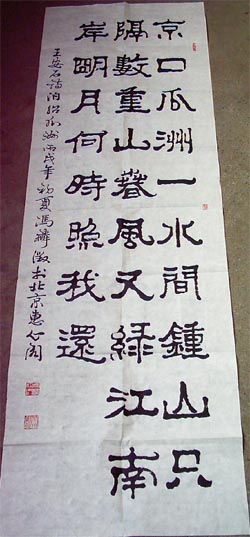 京口瓜洲一水間鍾山只
隔數重山春風又綠江南
岸明月何時照我還
王安石詩泊船瓜洲丙戌年初夏馮 书北京惠心阁